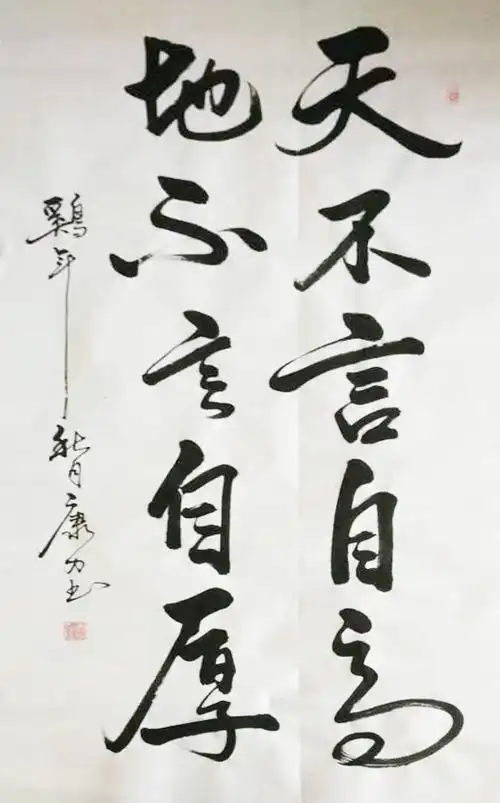 天不言自高
地不言自厚
鷄年秋月康力书